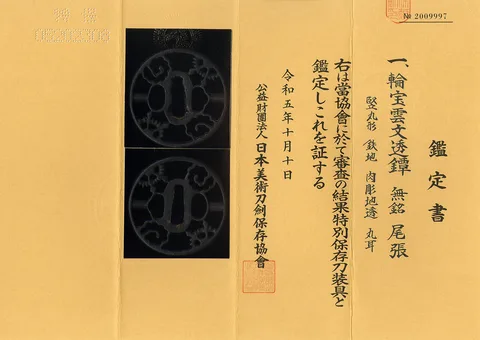 № 2009997
鑑定書
一、輪宝雲文透鐔 無銘 尾張
竪丸形 鉄地 肉彫地透 丸耳
右は當協會に於て審査の結果特別保存刀装具と
鑑定しこれを証する
令和五年十月十日
公益財團法人 日本美術刀劍保存協會